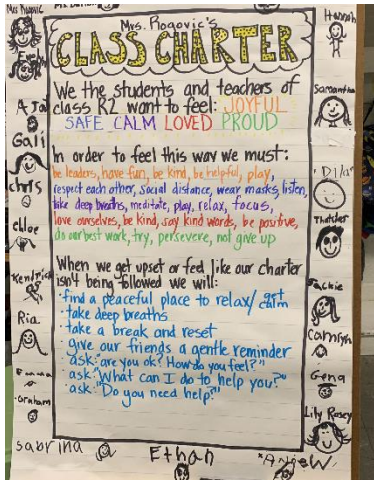 Mrs. Rogovic's
CLASS CHARTER
We the students and teachers of
class R2 want to feel: JOYFUL
SAFE CALM LOVED PROUD
In order to feel this way we must:
be leaders, have fun, be kind, be helpful, play,
respect each other, social distance, wear masks, listen,
take deep breaths, meditate, play, relax, focus,
love ourselves, be kind, say kind words, be positive,
do our best work, try, persevere, not give up
When we get upset or feel like our charter
isn't being followed we will:
·find a peaceful place to relax/get calm
·take deep breaths
·take a break and reset
·give our friends a gentle reminder
·ask: "are you ok? How do you feel?"
·ask: "What can I do to help you?"
·ask: "Do you need help?"
Mrs Rogovic
AJa
Gali
chris
chloe
Kendrick
Ria
Emma
Graham
Sabrina
Ethan
Hannah
Samantha
Dila
Thatcher
Jackie
Camryn
Gena
Lily Rosey